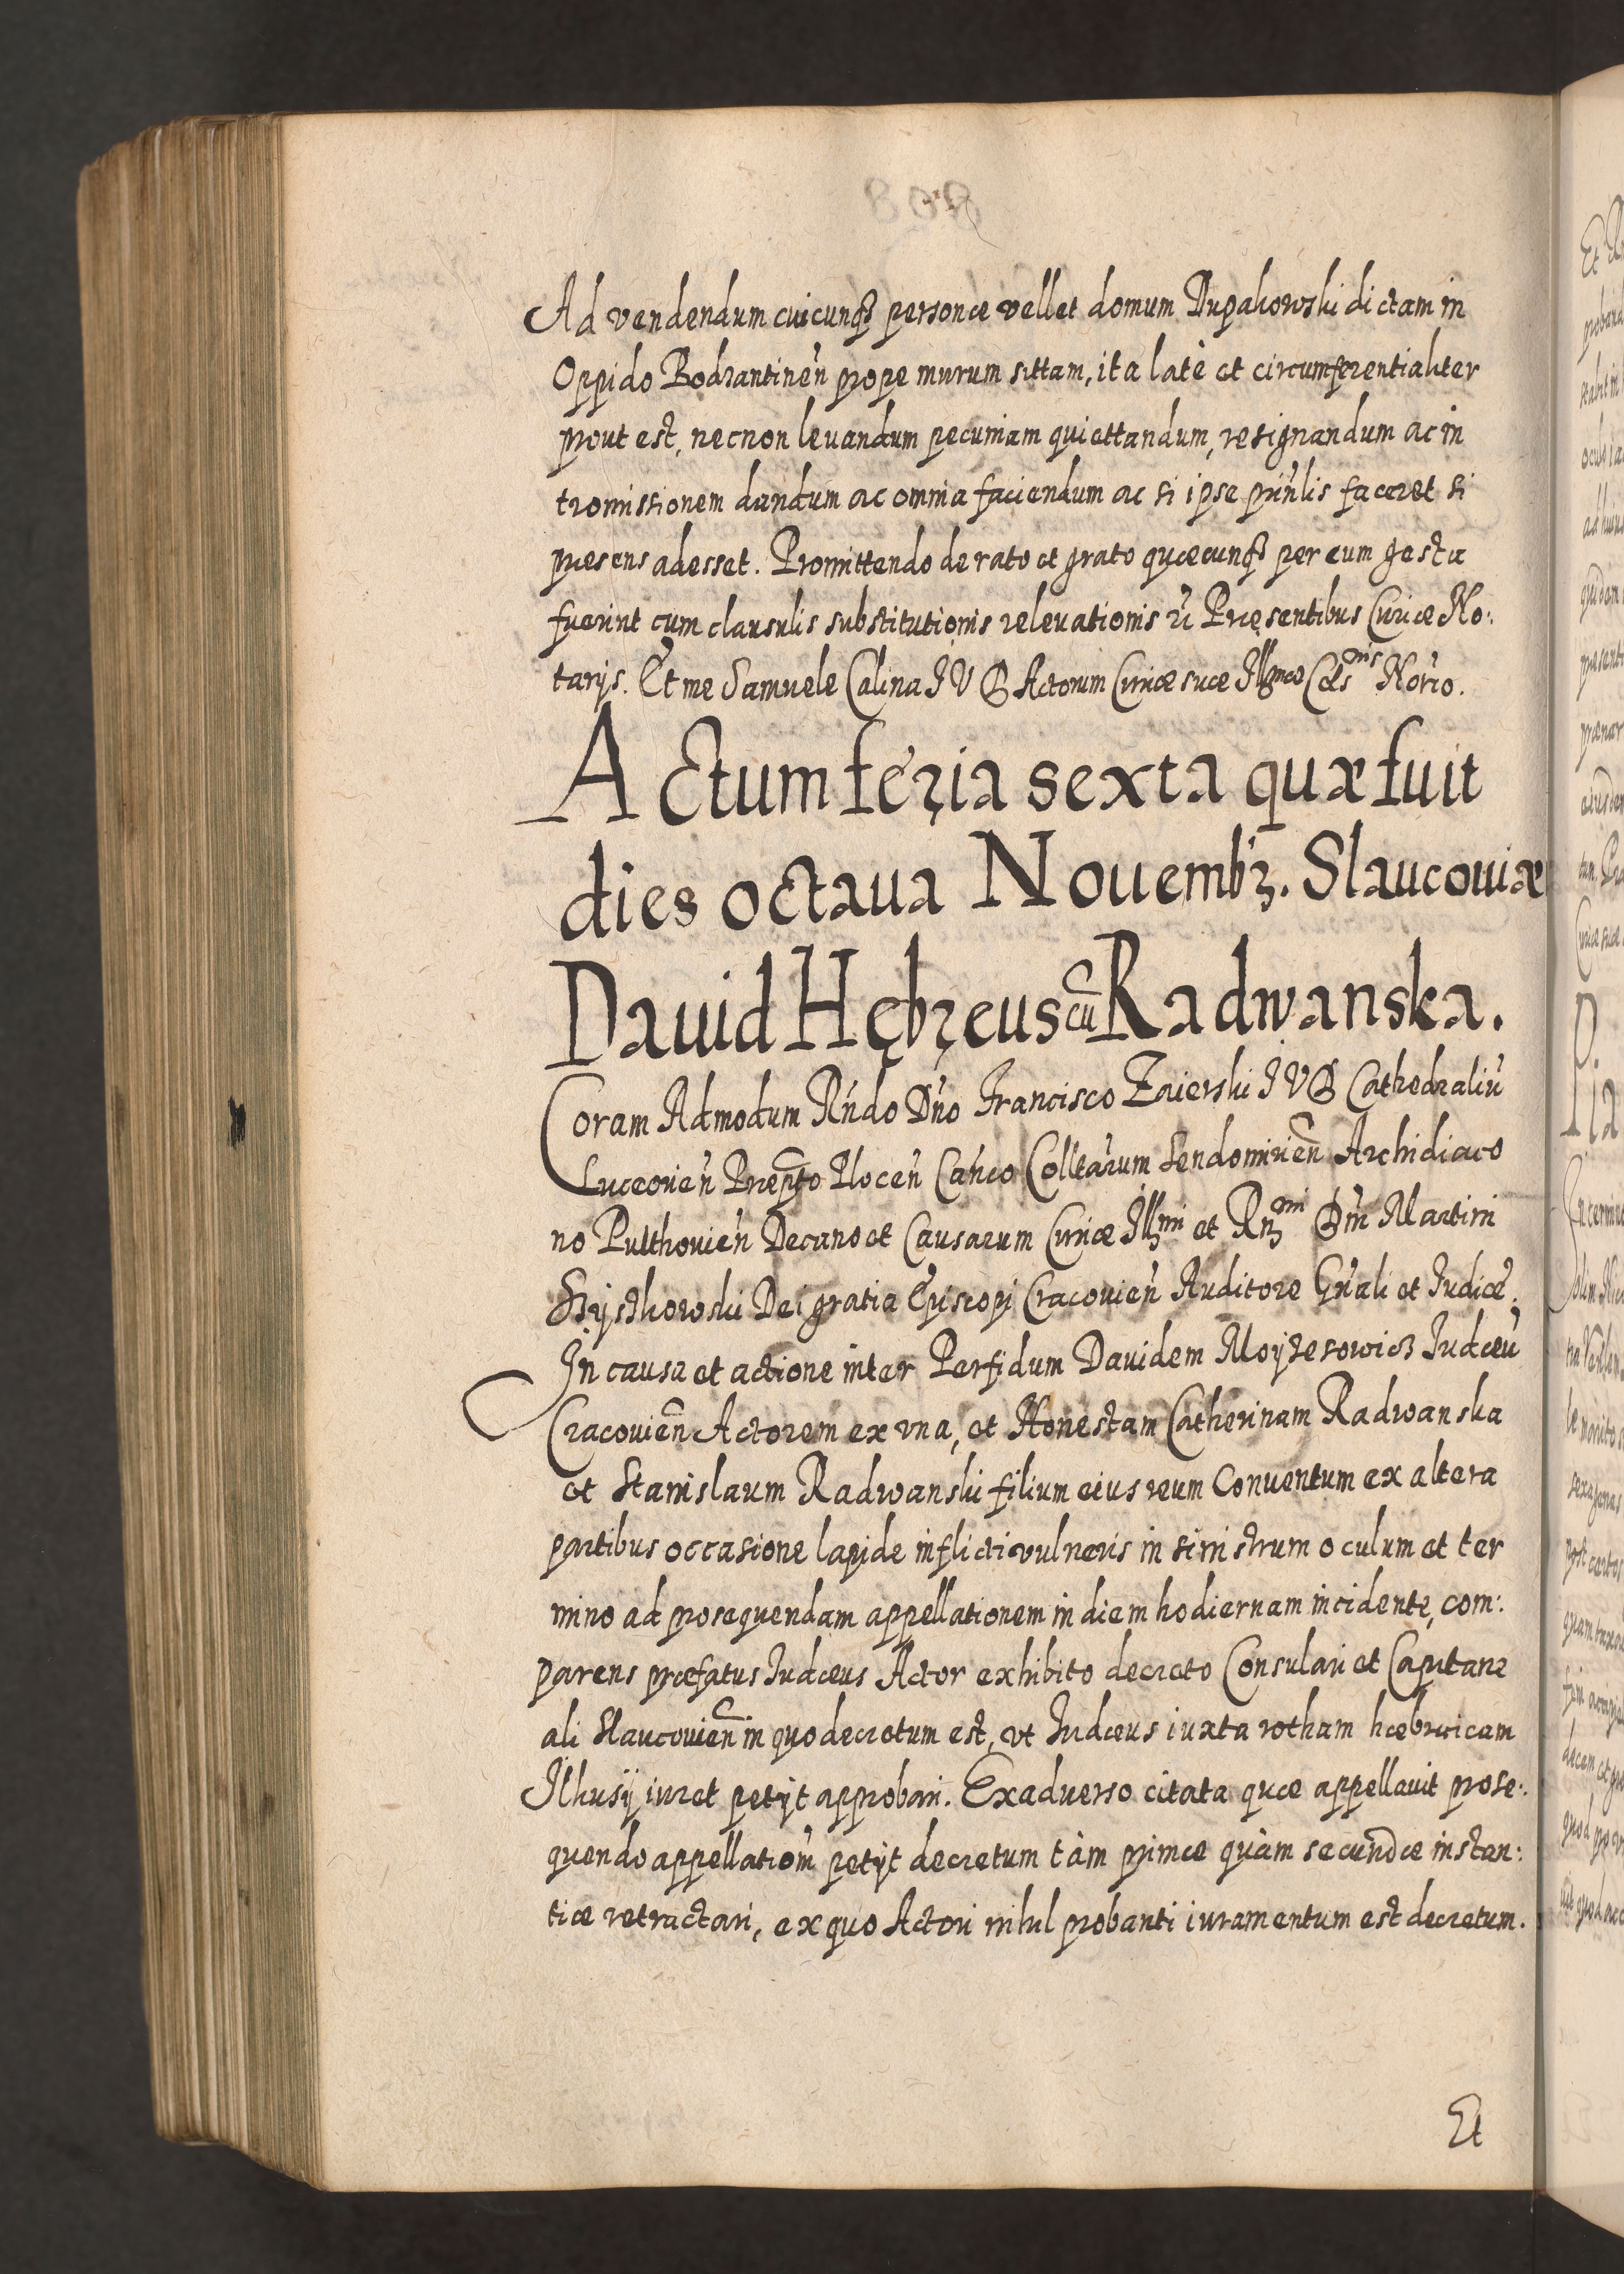 Ad vendendum cuicunq₃ personæ vellet domum Dupakowski dictam in
Oppido Bodzantineń prope murum sittam, ita latè et circumferentialiter
prout est, necnon leuandum pecuniam quiettandum, resignandum ac in
tromissionem dandum ac omnia faciendum ac si ipse prińlis faceret si
præsens adesset. Promittendo de rato et grato quæcunq₃ per eum gesta
fuerint cum clausulis substitutionis releuationis Præsentibus Curiæ No:
tarijs. Et me Samuele Calina I V D Actorum Curiæ suæ Nório.
Actum feria sexta quæ fuit
dies octaua Nouembr̃. Slaucouiæ
Dauid Hębręus cũ Radwanska.
Coram Admodum Rńdo Dńo Francisco Zaierski I V D Cathedraliũ
Luceorień Præpto Plocen Cańco Colltárum Sendomirień Archidiaco
no Pulthouień Decano et Causarum Curiæ Illmi et Rmi Dńi Martini
Szyszkowski Dei gratia Episcopi Cracouień Auditore Gńali et Iudice.
In causa et actione inter Perfidum Dauidem Moyzesowicz Iudæũ
Cracouień Actorem ex vna, et Honestam Catherinam Radwanska
et Stanislaum Radwanski filium eius reum Conuentum ex altera
partibus occasione lapide inflicti vulneris in sinistrum oculum et ter
mino ad prosequendam appellationem in diem hodiernam incidente, com:
parens præfatus Iudæus Actor exhibito decreto Consulari et Capitane
ali Slaucouień in quo decretum est, vt Iudæus iuxta rotham hæbraicam
Ilkusij iuret petijt approbari. Ex aduerso citata quæ appellauit prose:
quendo appellationẽ petijt decretum tàm primæ quàm secundæ instan:
tiæ retractari, ex quo Actori nihil probanti iuramentum est decretum.
Et